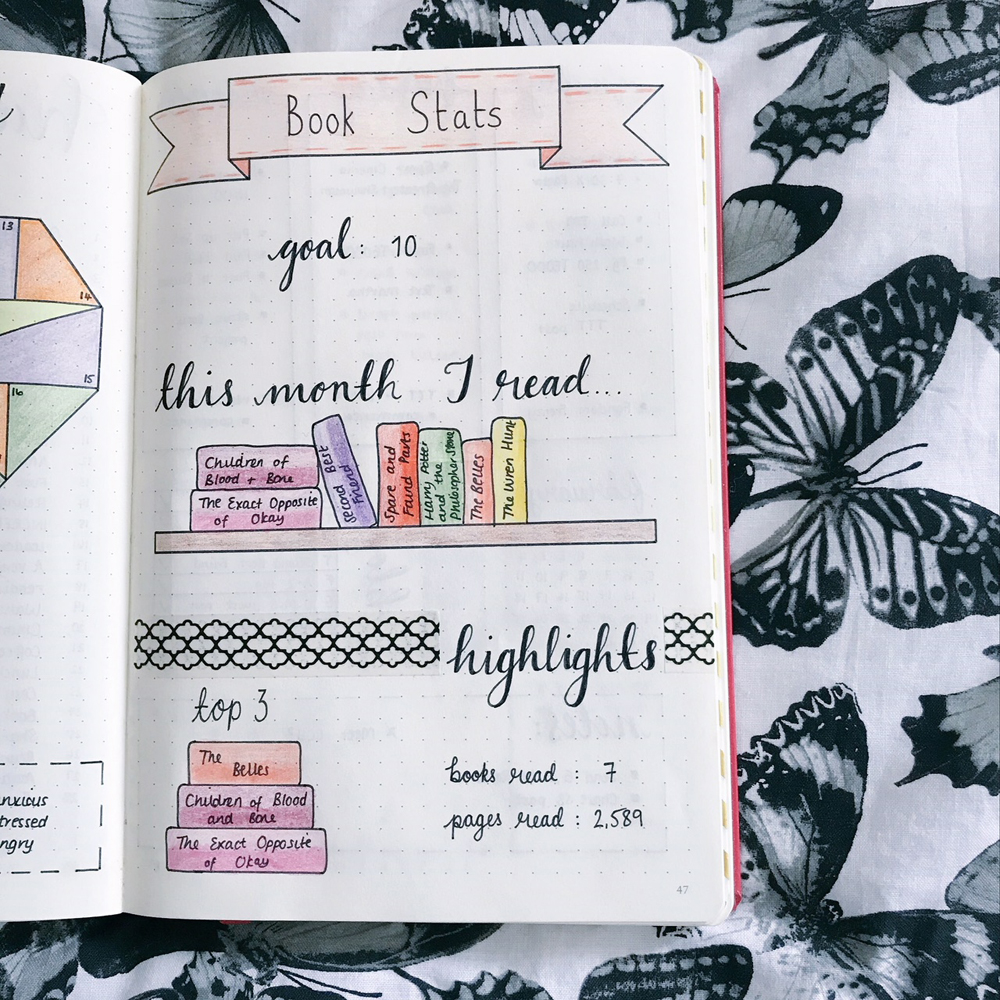 13
14
15
16
nxious
tressed
ngry
Book Stats
goal: 10
this month I read...
Children of
Blood + Bone
The Exact Opposite
of Okay
Second Best
Friend
Spare and
Found Parts
Harry Potter
and the
Philosopher Stone
The Belles
The Wren Hunt
highlights
top 3
The
Belles
Children of Blood
and Bone
The Exact Opposite
of Okay
books read : 7
pages read : 2,589
47